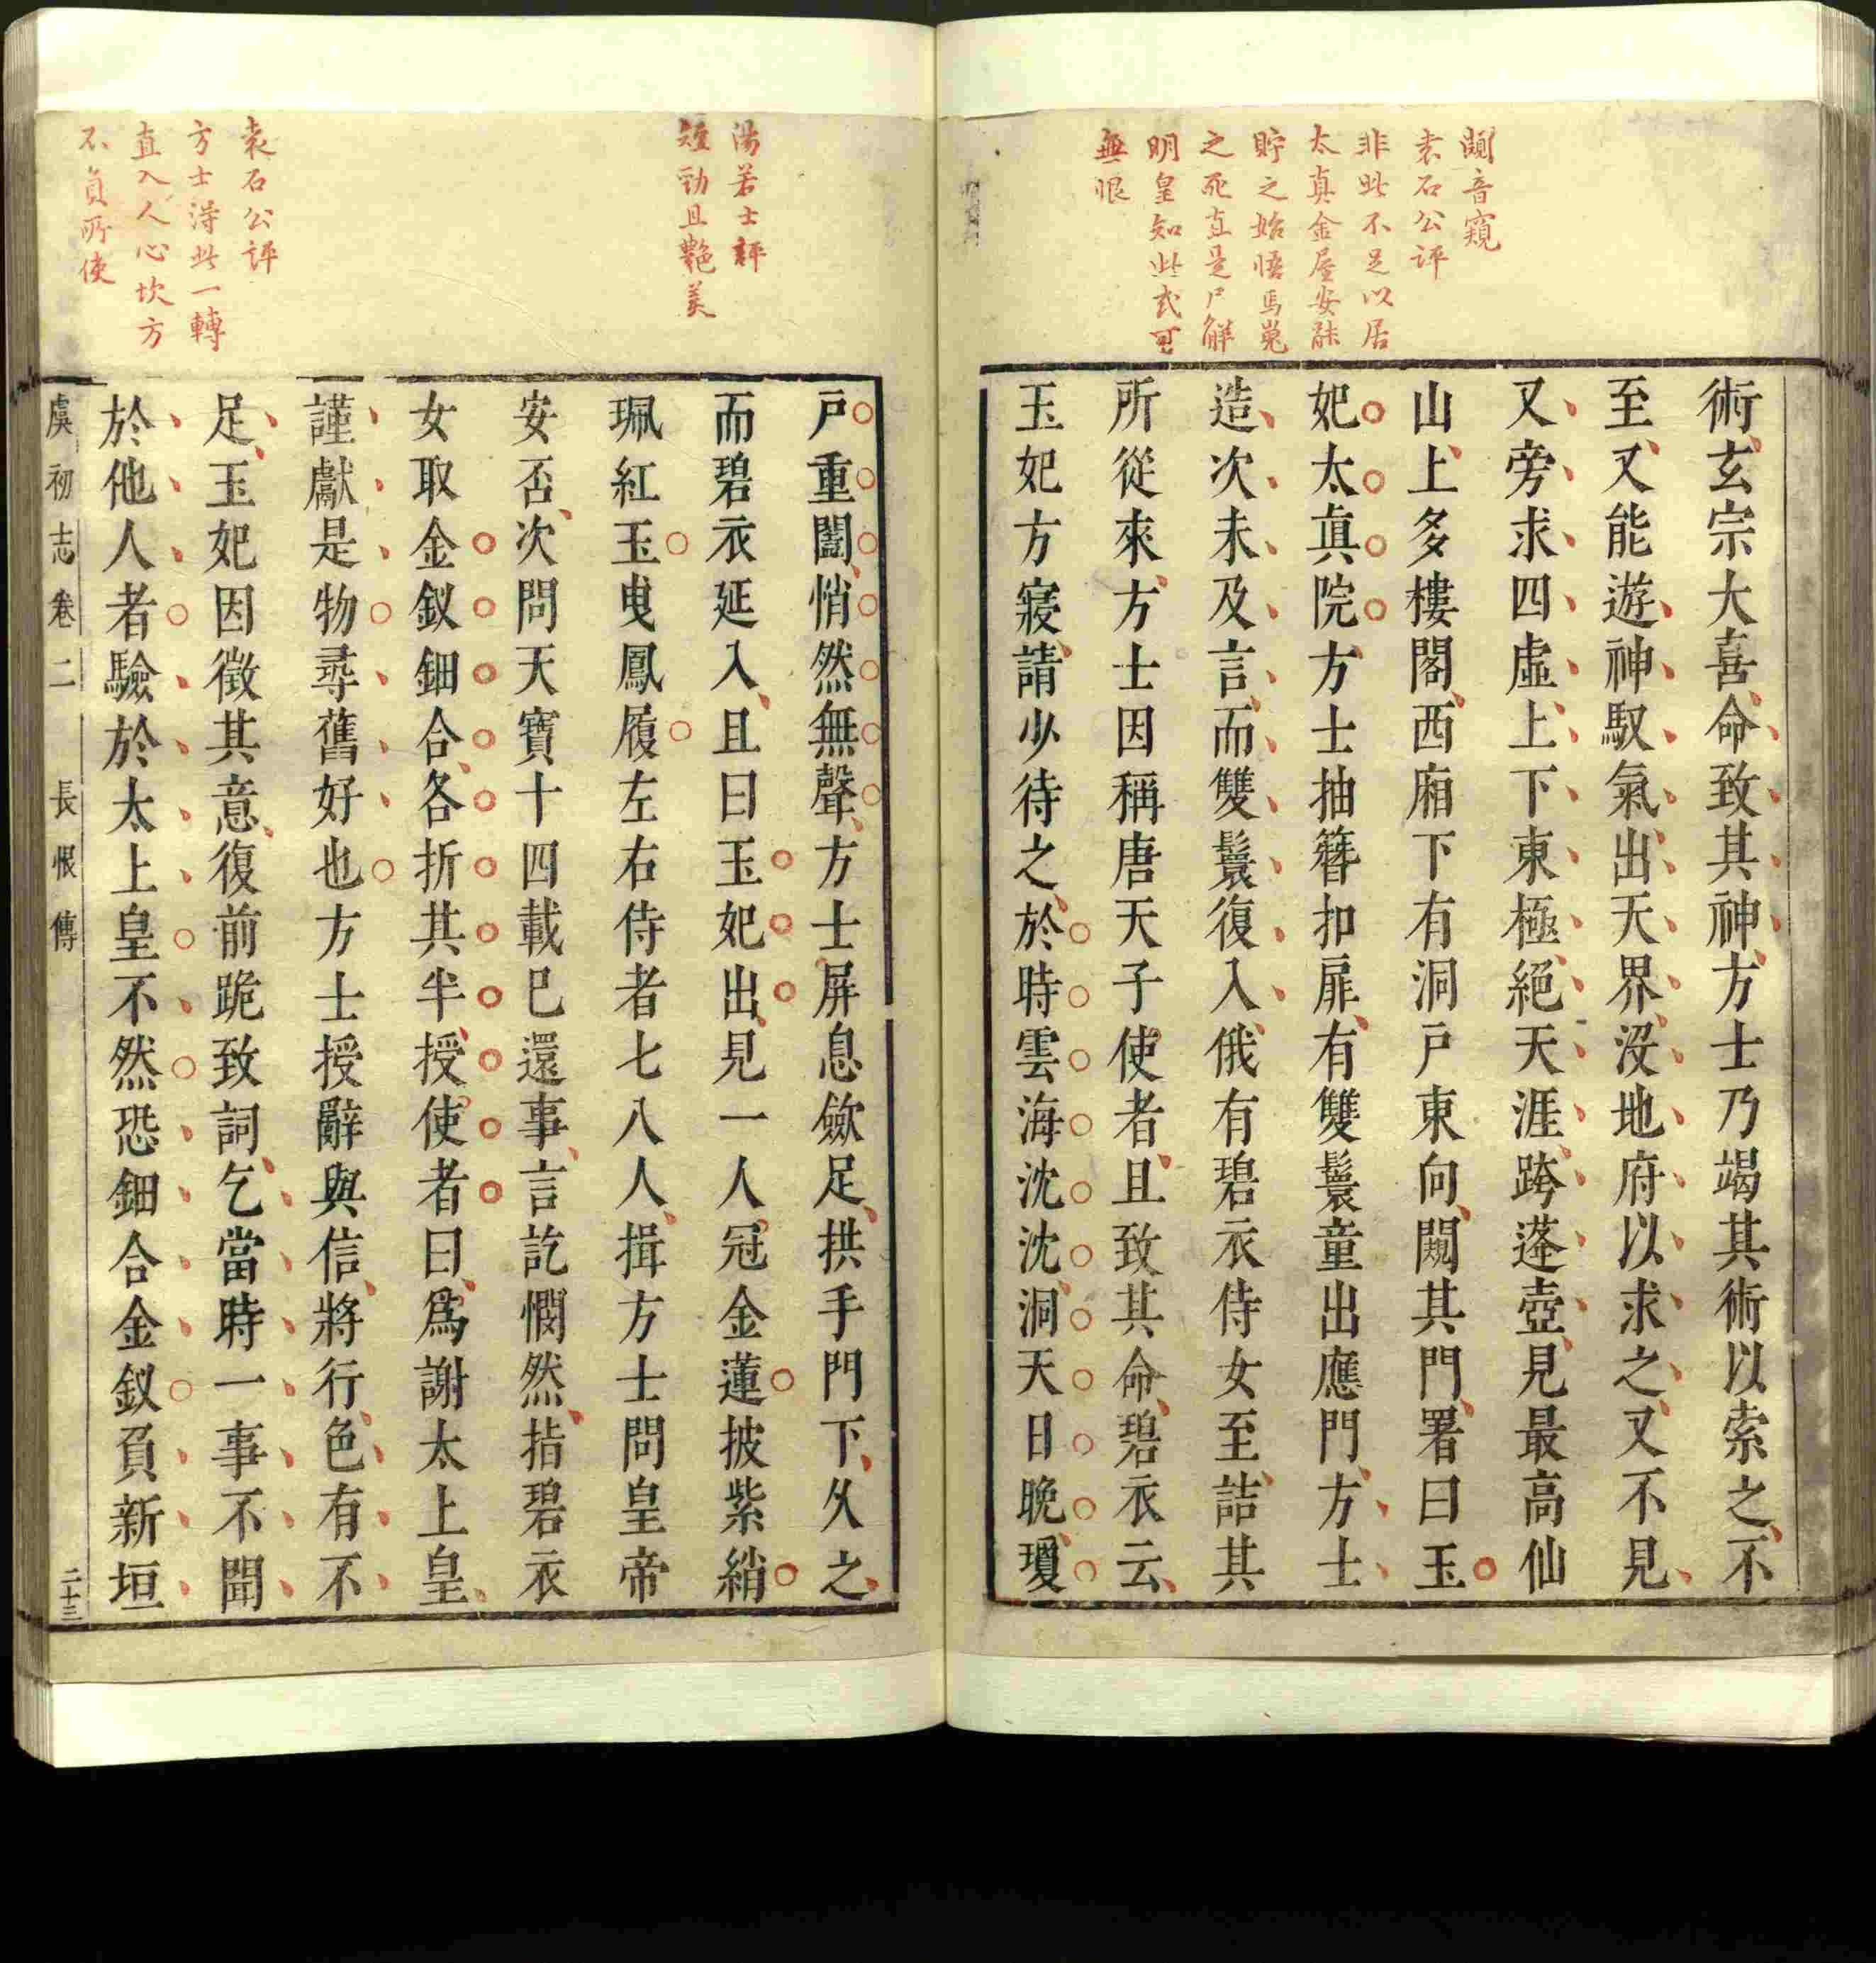 闚音窺
袁石公評
非此不足以居
太真金屋安能
貯之始悟馬嵬
之死直是尸解
明皇知此或可
無恨
術玄宗大喜命致其神方士乃竭其術以索之不
至又能遊神馭氣出天界沒地府以求之又不見
又旁求四虛上下東極絕天涯跨蓬壺見最高仙
山上多樓閣西廂下有洞戶東向闚其門署曰玉
妃太真院方士抽簪扣扉有雙鬟童出應門方士
造次未及言而雙鬟復入俄有碧衣侍女至詰其
所從來方士因稱唐天子使者且致其命碧衣云
玉妃方寢請少待之於時雲海沈沈洞天日晚瓊
湯若士評
短勁且艷美
袁石公評
方士得此一轉
直入人心坎方
不負所使
戶重闔悄然無聲方士屏息歛足拱手門下久之
而碧衣延入且曰玉妃出見一人冠金蓮披紫綃
珮紅玉曳鳳履左右侍者七八人揖方士問皇帝
安否次問天寶十四載已還事言訖憫然指碧衣
女取金釵鈿合各折其半授使者曰爲謝太上皇
謹獻是物尋舊好也方士授辭與信將行色有不
足玉妃因徵其意復前跪致詞乞當時一事不聞
於他人者驗於太上皇不然恐鈿合金釵負新垣
虞初志卷二 長恨傳 二十三